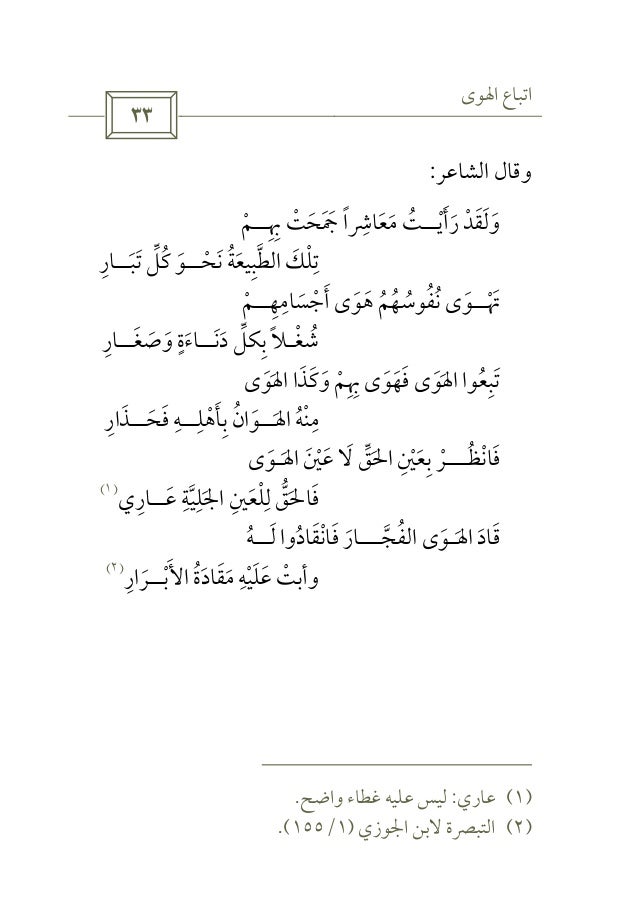 اتباع الهوى
٣٣
وقال الشاعر:
وَلَقَدْ رَأَيْـــتُ مَعَاشِراً جَمَحَتْ بِهِـــمْ
تِلْكَ الطَّبِيعَةُ نَحْـــوَ كُلِّ تَبَـــارِ
تَهْـــوَى نُفُوسُهُمُ هَوَى أَجْسَامِهِـــمْ
شُغْـــلاً بِكلِّ دَنَـــاءَةٍ وَصَغَـــارِ
تَبِعُوا الهَوَى فَهَوَى بِهِمْ وَكَذَا الهَوَى
مِنْهُ الهَـــوَانُ بِأَهْلِـــهِ فَحَـــذَارِ
فَانْظُـــرْ بِعَيْنِ الحَقِّ لَا عَيْنَ الهَـــوَى
فَالحَقُّ لِلْعَينِ الجَلِيَّةِ عَـــارِي(١)
قَادَ الهَـــوَى الفُجَّـــارَ فَانْقَادُوا لَـــهُ
وأبتْ عَلَيْهِ مَقَادَةُ الأَبْـــرَارِ(٢)
(١) عاري: ليس عليه غطاء واضح.
(٢) التبصرة لابن الجوزي (١/ ١٥٥).